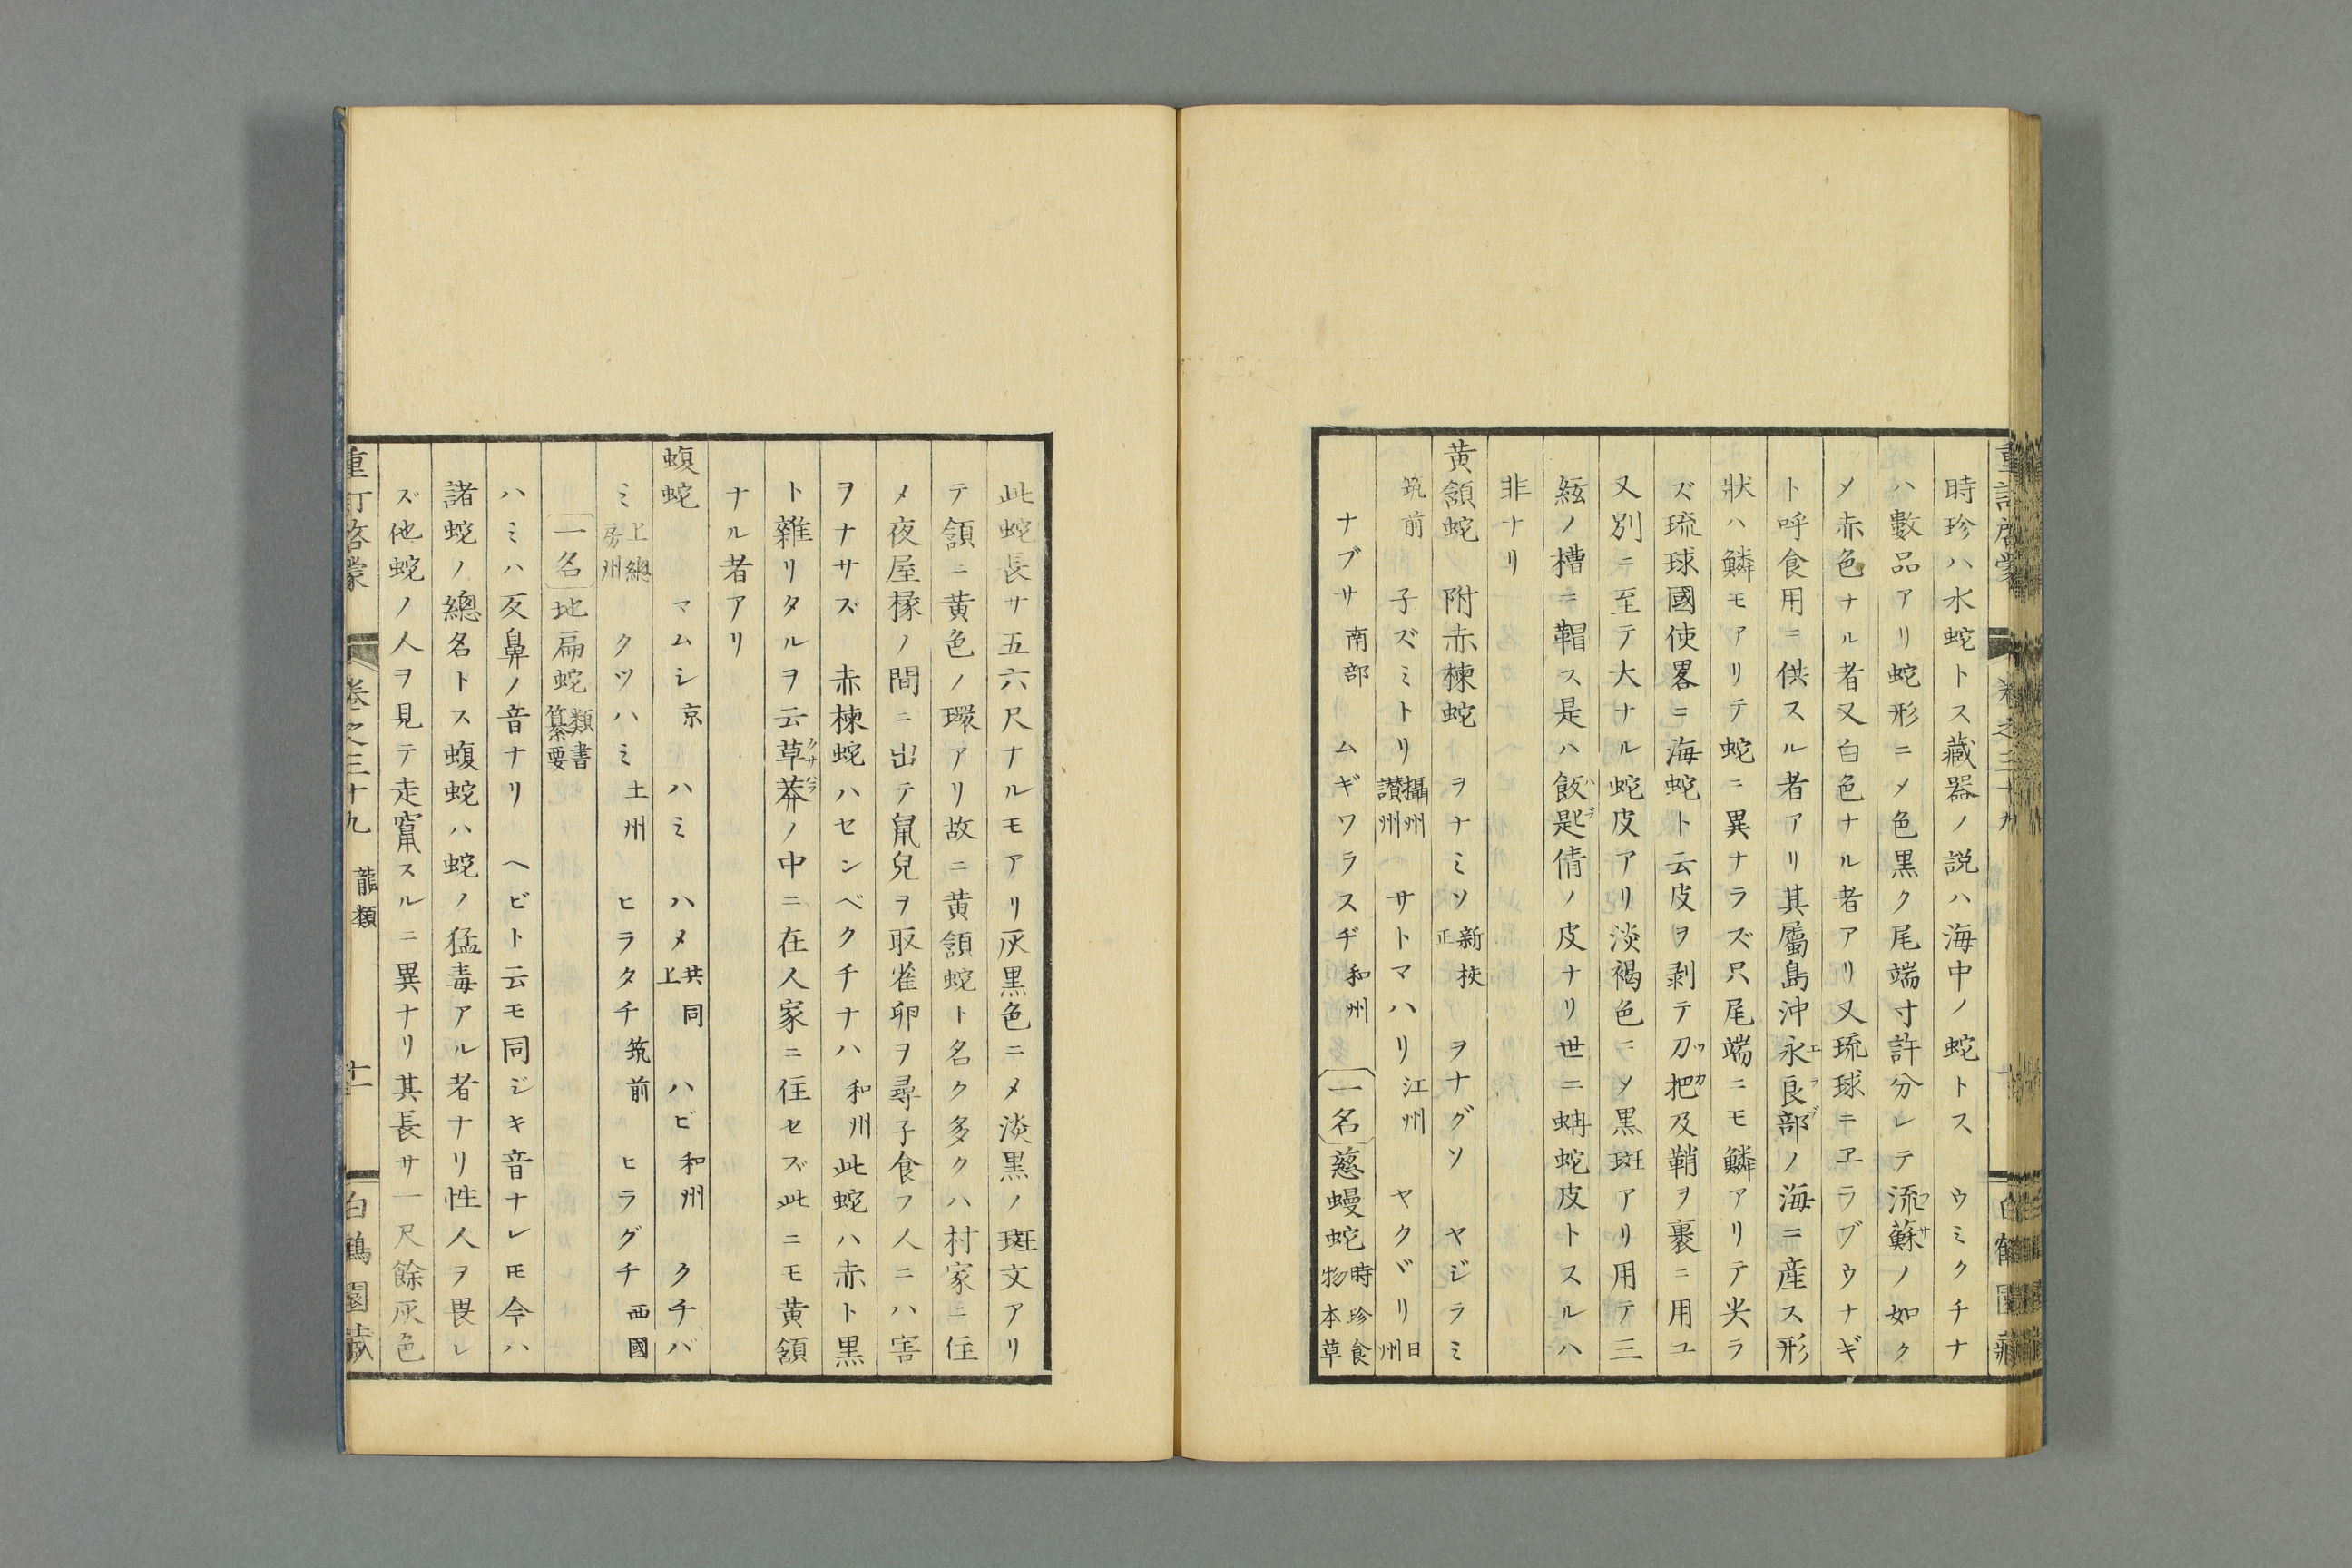 時珍ハ水蛇トス藏器ノ説ハ海中ノ蛇トス　ウミクチナ
ハ數品アリ蛇形ニメ色黒ク尾端寸許分レテ流蘇フサノ如ク
メ赤色ナル者又白色ナル者アリ又琉球ニヱラブウナギ
ト呼食用ニ供スル者アリ其屬島沖永良部エラブノ海ニ産ス形
狀ハ鱗モアリテ蛇ニ異ナラズ只尾端ニモ鱗アリテ尖ラ
ズ琉球國使畧ニ海蛇ト云皮ヲ剥テ刀把ツカ及鞘ヲ裹ニ用ユ
又別ニ至テ大ナル蛇皮アリ淡褐色ニメ黒斑アリ用テ三
絃ノ槽ニ鞔ス是ハ飯匙倩ハブノ皮ナリ世ニ蚺蛇皮トスルハ
非ナリ
黄頷蛇　附赤楝蛇　ヲナミソ新挍正　ヲナグソ　ヤジラミ
筑前　子ズミトリ攝州讃州　サトマハリ江州　ヤクヾリ日州
ナブサ南部　ムギワラスヂ和州　一名慈蟃蛇時珍食物本草
重訂啓蒙　卷之三十九　龍類　十一　白鶴園藏
此蛇長サ五六尺ナルモアリ灰黒色ニメ淡黒ノ斑文アリ
テ頷ニ黄色ノ環アリ故ニ黄頷蛇ト名ク多クハ村家ニ住
メ夜屋椽ノ間ニ出テ鼠兒ヲ取雀卵ヲ尋子食フ人ニハ害
ヲナサズ　赤楝蛇ハセンベクチナハ和州此蛇ハ赤ト黒
ト雜リタルヲ云草莽クサハラノ中ニ在人家ニ住セズ此ニモ黄頷
ナル者アリ
蝮蛇　マムシ京　ハミ　ハメ共同上　ハビ和州　クチバ
ミ上總房州　クツハミ土州　ヒラタチ筑前　ヒラグチ西國
一名地扁蛇類書纂要
ハミハ反鼻ノ音ナリ　ヘビト云モ同ジキ音ナレ𪜈今ハ
諸蛇ノ總名トス蝮蛇ハ蛇ノ猛毒アル者ナリ性人ヲ畏レ
ズ他蛇ノ人ヲ見テ走竄スルニ異ナリ其長サ一尺餘灰色